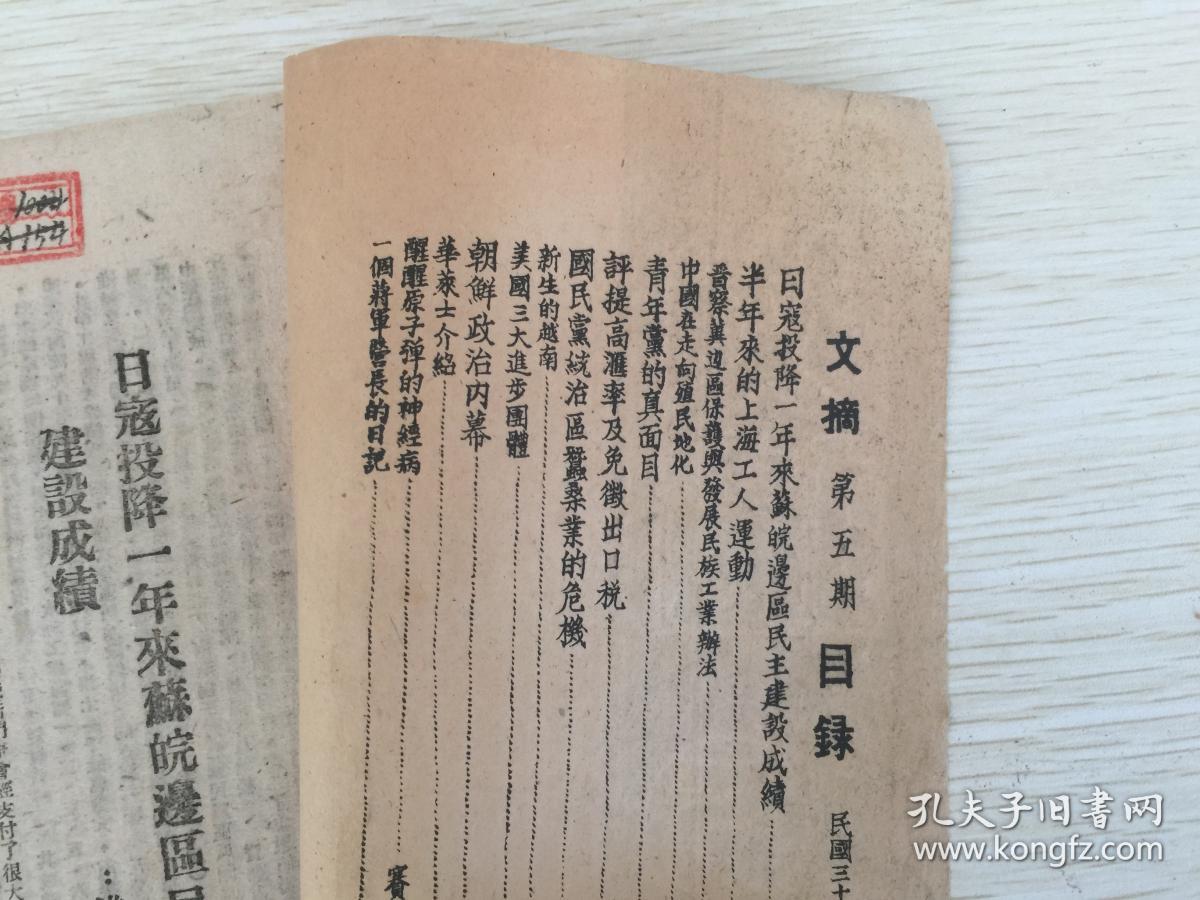 文摘 第五期 目録 民國三十
日寇投降一年來蘇皖邊區民主建設成績
半年來的上海工人運動
晉察冀邊區保護與發展民族工業辦法
中國在走向殖民地化
青年黨的真面目
評提高滙率及免徵出口税
國民黨統治區蠶桑業的危機
新生的越南
美國三大進步團體
朝鮮政治內幕
華萊士介紹
醒醒原子弹的神經病
一個蔣軍營長的日記
賽
日寇投降一年來蘇皖邊區
建設成績
會經支付了很大
孔夫子旧书网
www.kongfz.com